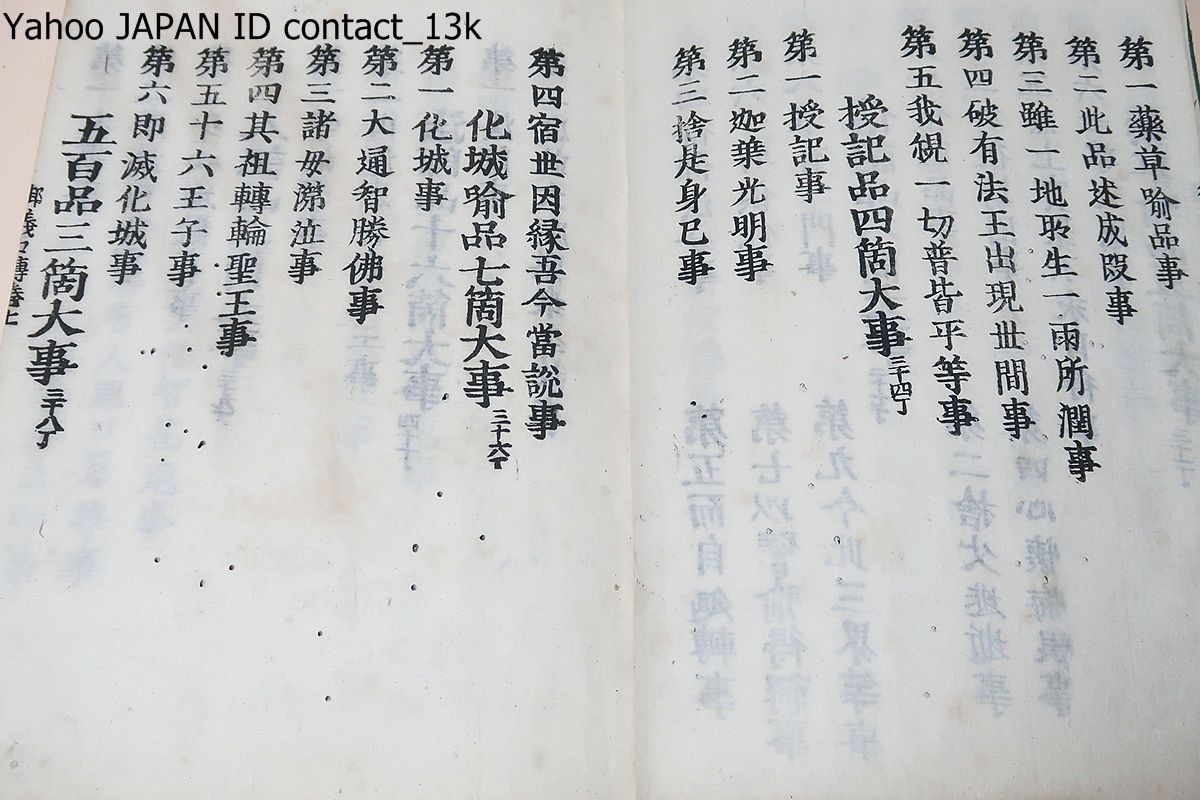 Yahoo JAPAN ID contact_13k
第一藥草喻品事
第二此品述成段事
第三雖一地所生一雨所潤事
第四破有法王出現世間事
第五我觀一切普皆平等事
授記品四箇大事 三十四丁
第一授記事
第二迦葉光明事
第三捨是身已事
第四宿世因緣吾今當說事
化城喻品七箇大事 三十六丁
第一化城事
第二大通智勝佛事
第三諸母涕泣事
第四其祖轉輪聖王事
第五十六王子事
第六即滅化城事
五百品三箇大事 三十八丁